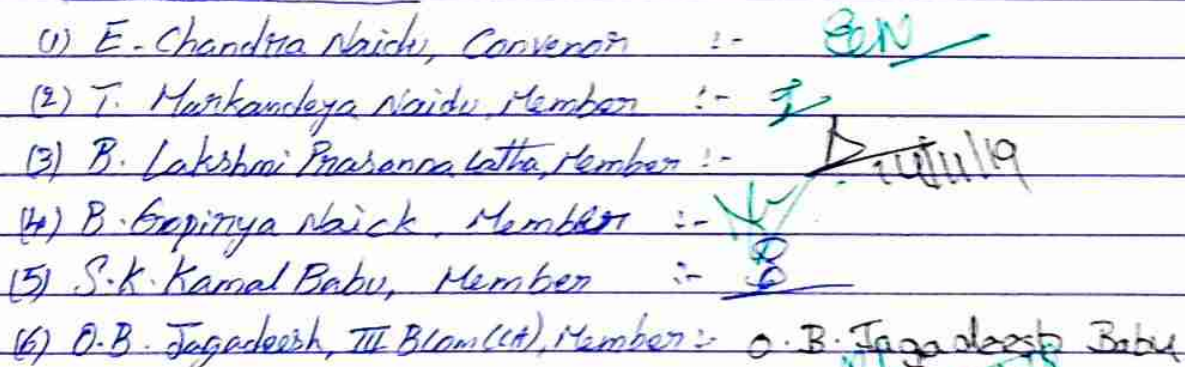 (1) E. Chandra Naidu, Convenor :-
(2) T. Markandeya Naidu, Member :-
(3) B. Lakshmi Prasanna Latha, Member :- 14/11/19
(4) B. Gopinya Naick, Member :-
(5) S.K. Kamal Babu, Member :-
(6) O.B. Jagadeesh, III BCom(CA), Member :- O.B. Jagadeesh Babu